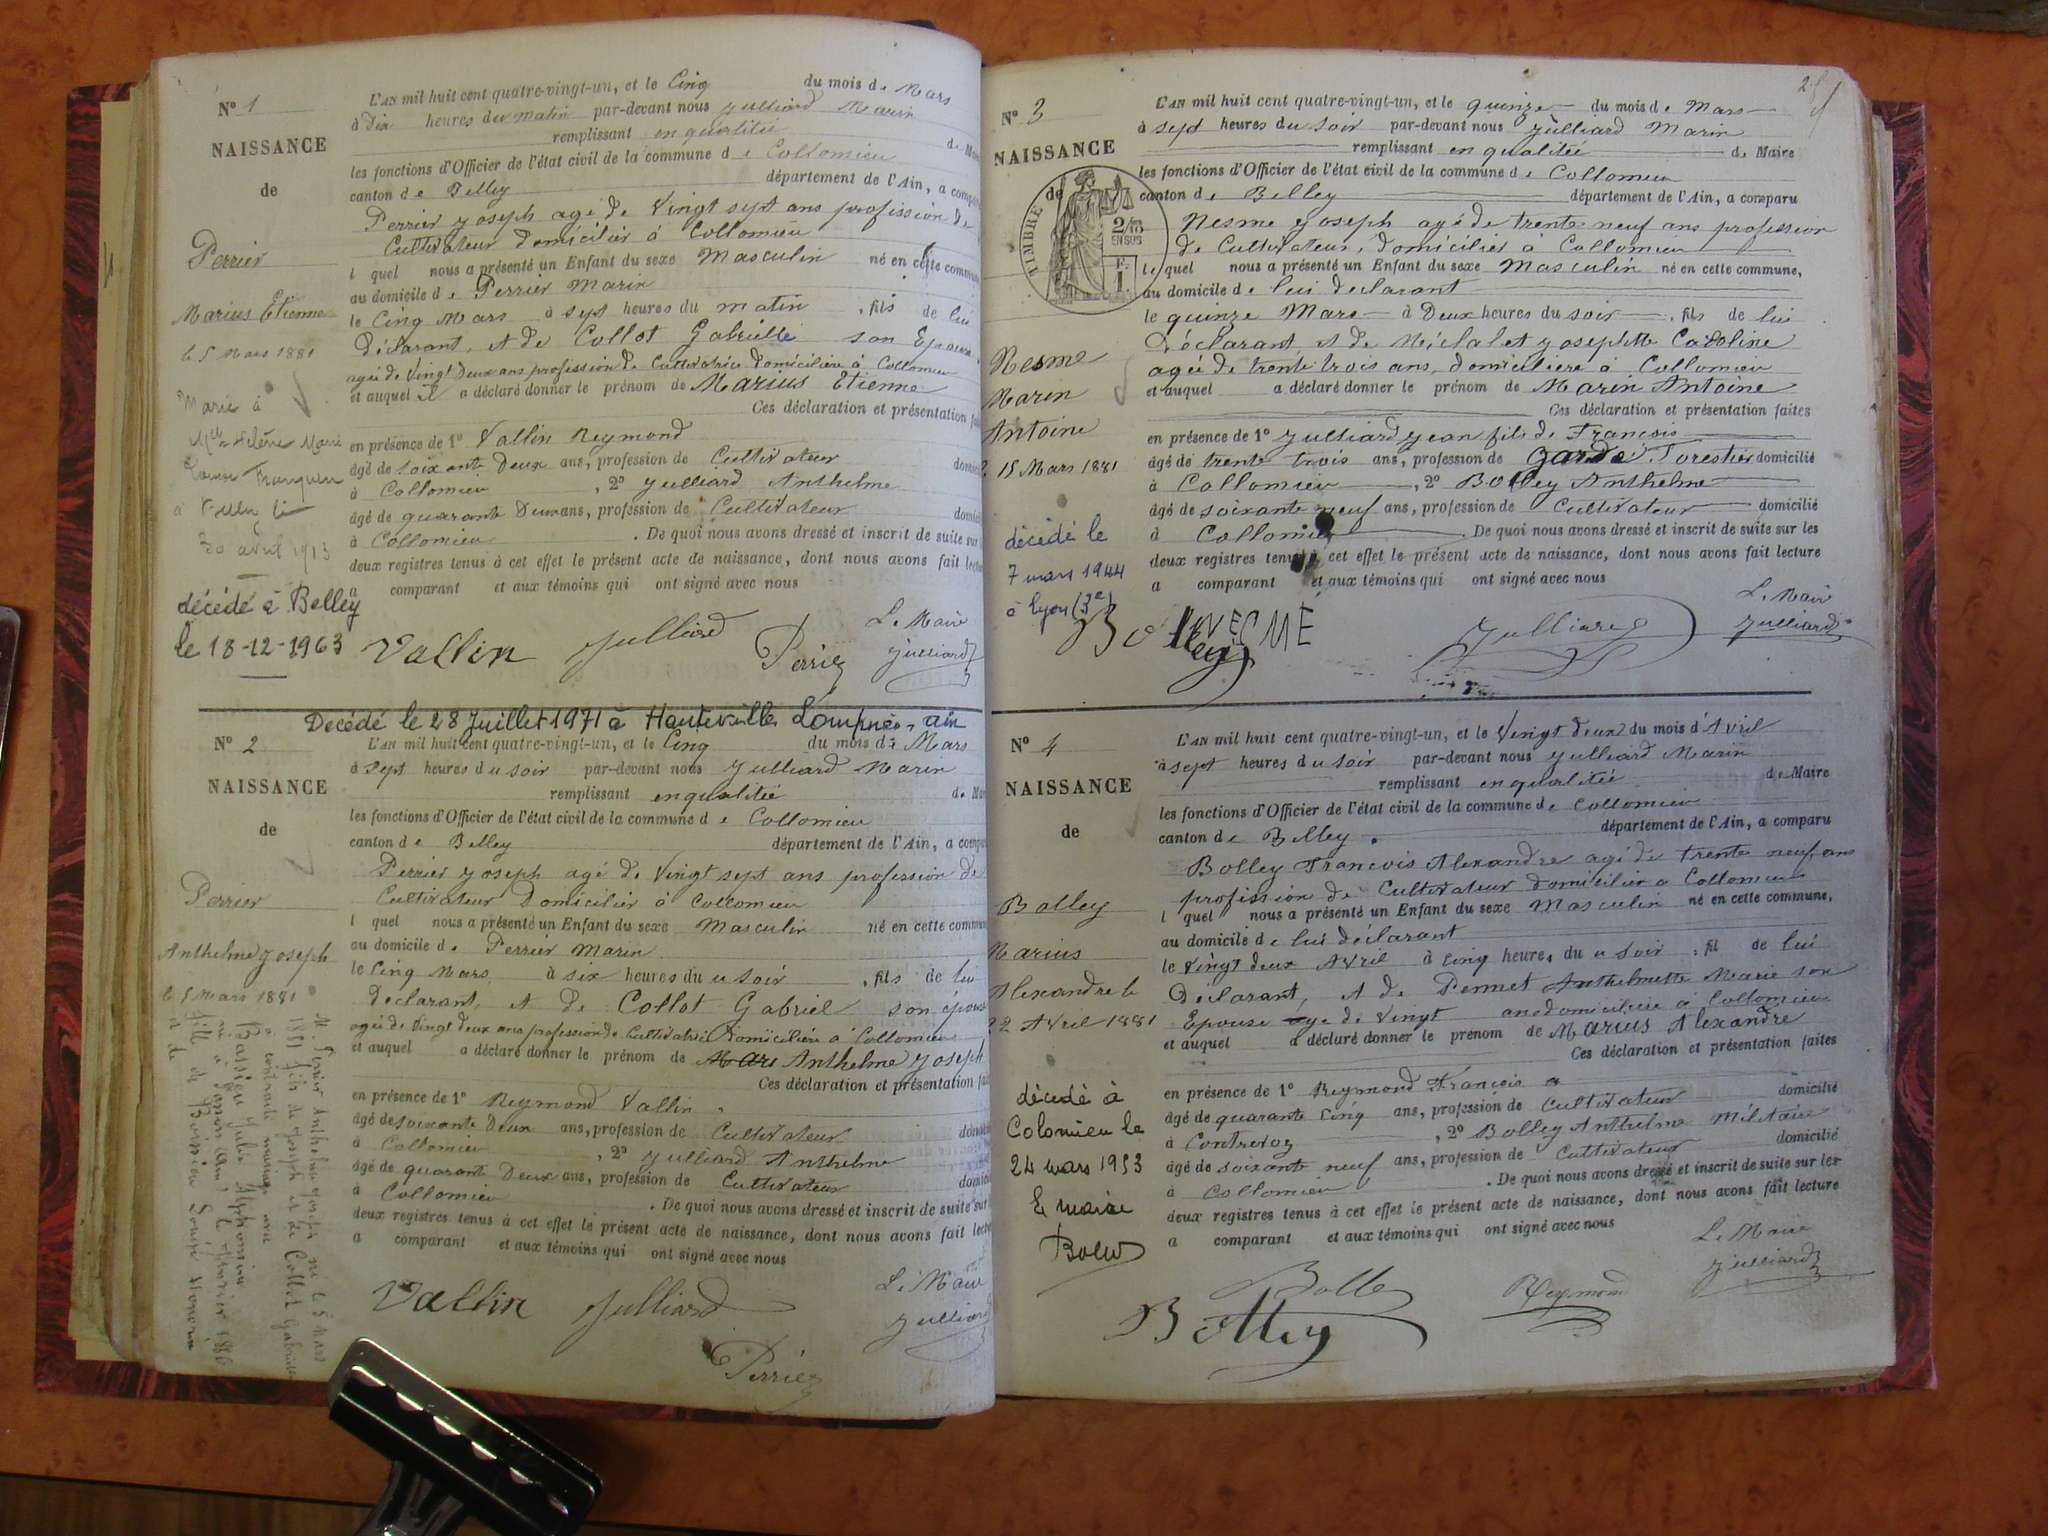 N° 1
NAISSANCE
de
Perrier
Marius Etienne
le 5 Mars 1881
Marié à
Hélène Marie
à
30 avril 1913
décédé à Belley
le 18-12-1963
L'AN mil huit cent quatre-vingt-un, et le Cinq du mois de Mars
à Dix heures du matin par-devant nous Julliard Marin
remplissant en qualitée de
les fonctions d'Officier de l'état civil de la commune de Collomieu
canton de Belley département de l'Ain, a
Perrier Joseph agé de Vingt sept ans profission de
Cultivateur domicilier à Collomieu
l quel nous a présenté un Enfant du sexe Masculin né en cette
au domicile de Perrier Marin
le Cinq Mars à sept heures du matin , fils de lui
Déclarant, et de Collot Gabrielle son Epouse
agée de Vingt Deux ans profession de Cultivatrice domicilière à Collomieu
et auquel Il a déclaré donner le prénom de Marius Etienne
Ces déclaration et présentation
en présence de 1° Vallin Reymond
âgé de soixante Deux ans, profession de Cultivateur
à Collomieu , 2° Julliard Anthelme
âgé de quarante Deux ans, profession de Cultivateur
à Collomieu . De quoi nous avons dressé et inscrit de suite sur
deux registres tenus à cet effet le présent acte de naissance, dont nous avons fait
a comparant et aux témoins qui ont signé avec nous
Vallin Julliard Perrier Le Maire
Julliard
Decédé le 28 Juillet 1971 à Hauteville Lompnes - ain
N° 2
NAISSANCE
de
Perrier
Anthelme Joseph
le 5 Mars 1881
M. Perrier Anthelme Joseph né le 5 Mars
1881 fils de Joseph et de Collot Gabrielle
a contracté mariage avec
Julie Alphonsine
fille de
et de
L'AN mil huit cent quatre-vingt-un, et le Cinq du mois de Mars
à Sept heures du soir par-devant nous Julliard Marin
remplissant en qualitée de
les fonctions d'Officier de l'état civil de la commune de Collomieu
canton de Belley département de l'Ain, a
Perrier Joseph agé de Vingt sept ans profession de
Cultivateur Domicilier à Collomieu
l quel nous a présenté un Enfant du sexe Masculin né en cette
au domicile de Perrier Marin
le Cinq Mars à six heures du soir , fils de lui
Déclarant, et de Collot Gabriel son épouse
agée de Vingt deux ans profession de Cultivatrice Domicilière à Collomieu
et auquel a déclaré donner le prénom de Anthelme Joseph
Ces déclaration et présentation
en présence de 1° Reymond Vallin
âgé de soixante Deux ans, profession de Cultivateur
à Collomieu , 2° Julliard Anthelme
âgé de quarante Deux ans, profession de Cultivateur
à Collomieu . De quoi nous avons dressé et inscrit de suite sur
deux registres tenus à cet effet le présent acte de naissance, dont nous avons fait
a comparant et aux témoins qui ont signé avec nous
Vallin Julliard Le Maire
Julliard
Perrier
N° 3
NAISSANCE
de
TIMBRE
2/10
EN SUS
F.
1
Nesme
Marin
Antoine
15 Mars 1881
décédé le
7 mars 1944
à Lyon (3e)
L'AN mil huit cent quatre-vingt-un, et le quinze du mois de Mars
à sept heures du soir par-devant nous Julliard Marin
remplissant en qualitée de Maire
les fonctions d'Officier de l'état civil de la commune de Collomieu
canton de Belley département de l'Ain, a comparu
Nesme Joseph agé de trente neuf ans profession
de Cultivateur, domicilier à Collomieu
le quel nous a présenté un Enfant du sexe Masculin né en cette commune,
au domicile de lui declarant
le quinze Mars à Deux heures du soir , fils de lui
Déclarant et de Josephtte Caroline
agée de trente trois ans, domicilière à Collomieu
et auquel a déclaré donner le prénom de Marin Antoine
Ces déclaration et présentation faites
en présence de 1° Julliard Jean fils de François
âgé de trente trois ans, profession de Garde Forestier domicilié
à Collomieu , 2° Bolley Anthelme
âgé de soixante neuf ans, profession de Cultivateur domicilié
à Collomieu . De quoi nous avons dressé et inscrit de suite sur les
deux registres tenus à cet effet le présent acte de naissance, dont nous avons fait lecture
a comparant et aux témoins qui ont signé avec nous
Bolley NECME Julliard Le Maire
Julliard
N° 4
NAISSANCE
de
Bolley
Marius
Alexandre le
22 Avril 1881
décédé à
Colomieu le
24 mars 1953
le maire
L'AN mil huit cent quatre-vingt-un, et le Vingt deux du mois d'Avril
à sept heures du soir par-devant nous Julliard Marin
remplissant en qualitée de Maire
les fonctions d'Officier de l'état civil de la commune de Collomieu
canton de Belley département de l'Ain, a comparu
Bolley Francois Alexandre agé de trente neuf ans
profission de Cultivateur domicilier à Collomieu
l quel nous a présenté un Enfant du sexe Masculin né en cette commune,
au domicile de lui déclarant
le Vingt deux Avril à cinq heures du soir , fil de lui
Déclarant, et de Pennet Anthelmette Marie son
Epouse age de Vingt an domicilière à Collomieu
et auquel a déclaré donner le prénom de Marius Alexandre
Ces déclaration et présentation faites
en présence de 1° Reymond François domicilié
âgé de quarante cinq ans, profession de Cultivateur
à Contrevoz , 2° Bolley Anthelme Militaire
âgé de soixante neuf ans, profession de Cultivateur domicilié
à Collomieu . De quoi nous avons dressé et inscrit de suite sur les
deux registres tenus à cet effet le présent acte de naissance, dont nous avons fait lecture
a comparant et aux témoins qui ont signé avec nous
Le Maire
Julliard
Bolle Reymond
Bolley